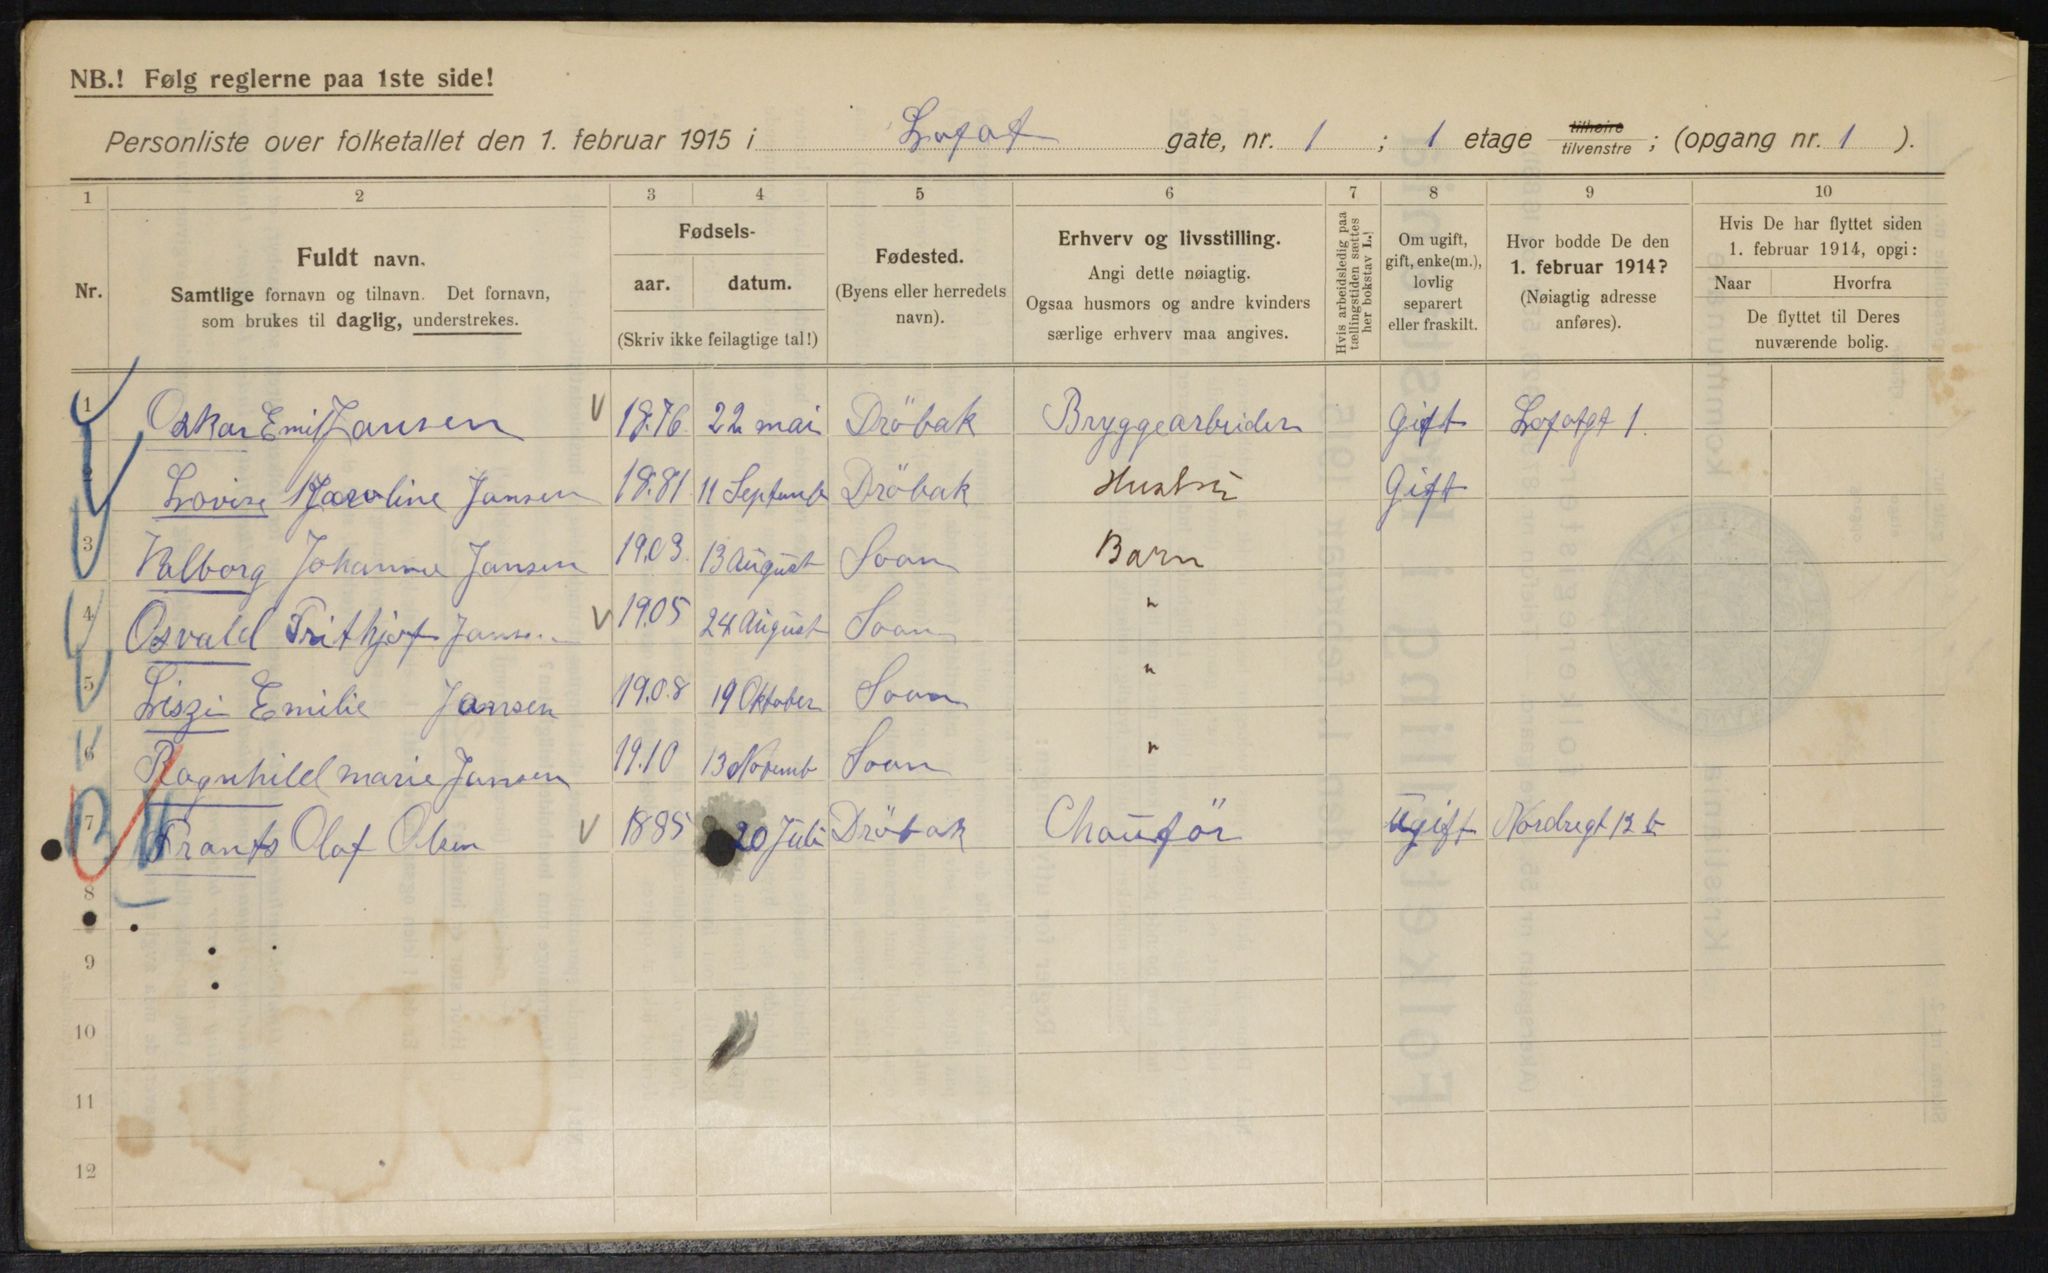 NB.! Følg reglerne paa 1ste side!
Personliste over folketallet den 1. februar 1915 i Lofot gate, nr. 1 ; 1 etage tilhøire tilvenstre ; (opgang nr. 1 ).
1 2 3 4 5 6 7 8 9 10
Nr.
Fuldt navn.
Samtlige fornavn og tilnavn. Det fornavn,
som brukes til daglig, understrekes.
Fødsels-
aar. datum.
(Skriv ikke feilagtige tal!)
Fødested.
(Byens eller herredets
navn).
Erhverv og livsstilling.
Angi dette nøiagtig.
Ogsaa husmors og andre kvinders
særlige erhverv maa angives.
Hvis arbeidsledig paa
tællingstiden sættes
her bokstav L.!
Om ugift,
gift, enke(m.),
lovlig
separert
eller fraskilt.
Hvor bodde De den
1. februar 1914?
(Nøiagtig adresse
anføres).
Hvis De har flyttet siden
1. februar 1914, opgi:
Naar Hvorfra
De flyttet til Deres
nuværende bolig.
1 Oskar Emil Jansen 1876 22 mai Dröbak Bryggearbeider Gift Lofotgt 1.
Lovise Karoline Jansen 1881 11 September Dröbak Hustru Gift
3 Valborg Johanne Jansen 1903 13 August Soon Barn
4 Osvald Frithjof Jansen 1905 24 August Soon "
5 Liszi Emilie Jansen 1908 19 Oktober Soon "
6 Ragnhild marie Jansen 1910 13 Novemb Soon "
7 Frants Olaf Olsen 1885 20 Juli Dröbak Chauför Ugift Nordregt 12 b
8
9
10
11
12